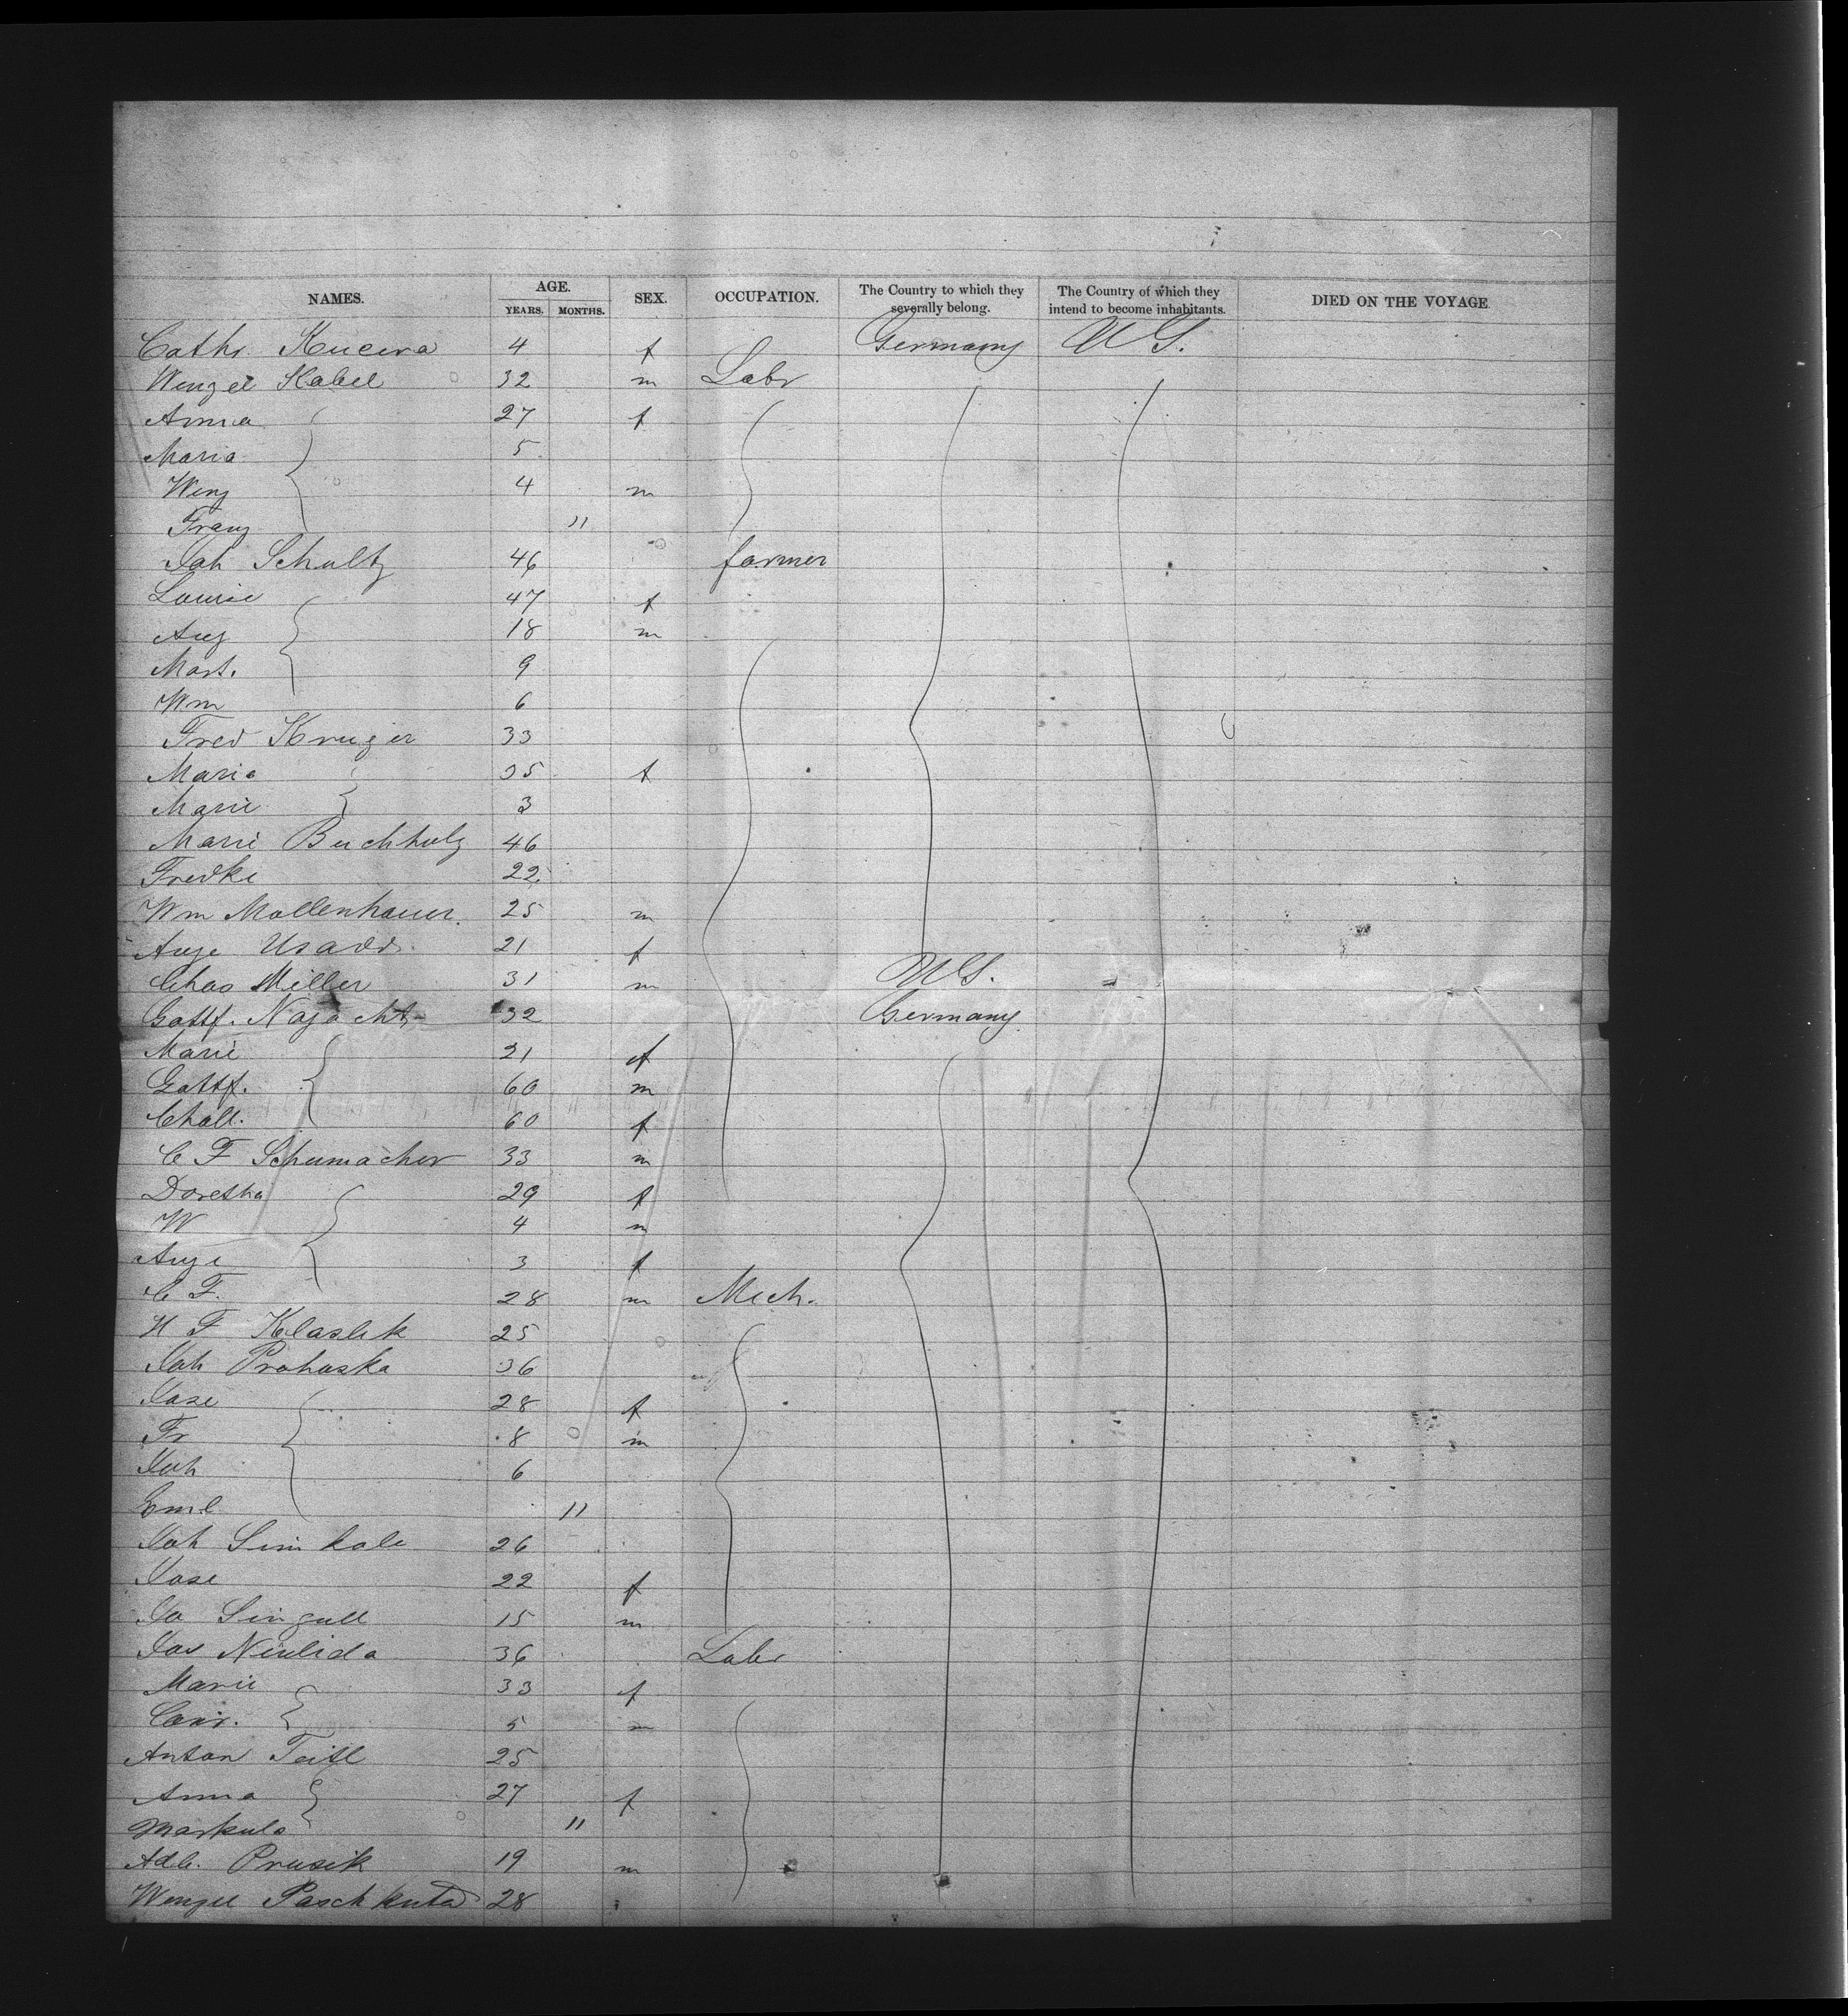 NAMES. AGE. SEX. OCCUPATION. The Country to which they severally belong. The Country of which they intend to become inhabitants. DIED ON THE VOYAGE.
YEARS. MONTHS.
Cathr. Kucera 4 f Germany US.
Wenzel Kabel 32 m Labr
Anna 27 f
Maria 5
Wenz 4 m
Franz 11
Joh Schultz 46 farmer
Louise 47 f
Aug 18 m
Mart. 9
Wm 6
Fred Kruger 33
Maria 35 f
Marie 3
Marie Buchholz 46
Fredke 22
Wm Mollenhauer 25 m
Auge 21 f
Chas Miller 31 m US.
Gottf. 32 Germany
Marie 21 f
Gottf. 60 m
60 f
C F Schumacher 33 m
Doretha 29 f
W 4 m
Auge 3 f
C F. 28 m Mech.
H F Klaslik 25
Joh Prohaska 36
Jose 28 f
Fr 8 m
Joh 6
Emil 11
Joh 26
Jose 22 f
15 m
36 Labr
Marie 33 f
5 m
Anton Teitl 25
Anna 27 f
11
Adb. Prusik 19 m
Wenzel 28